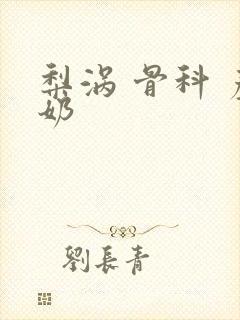 梨涡 骨科
奶
劉長青